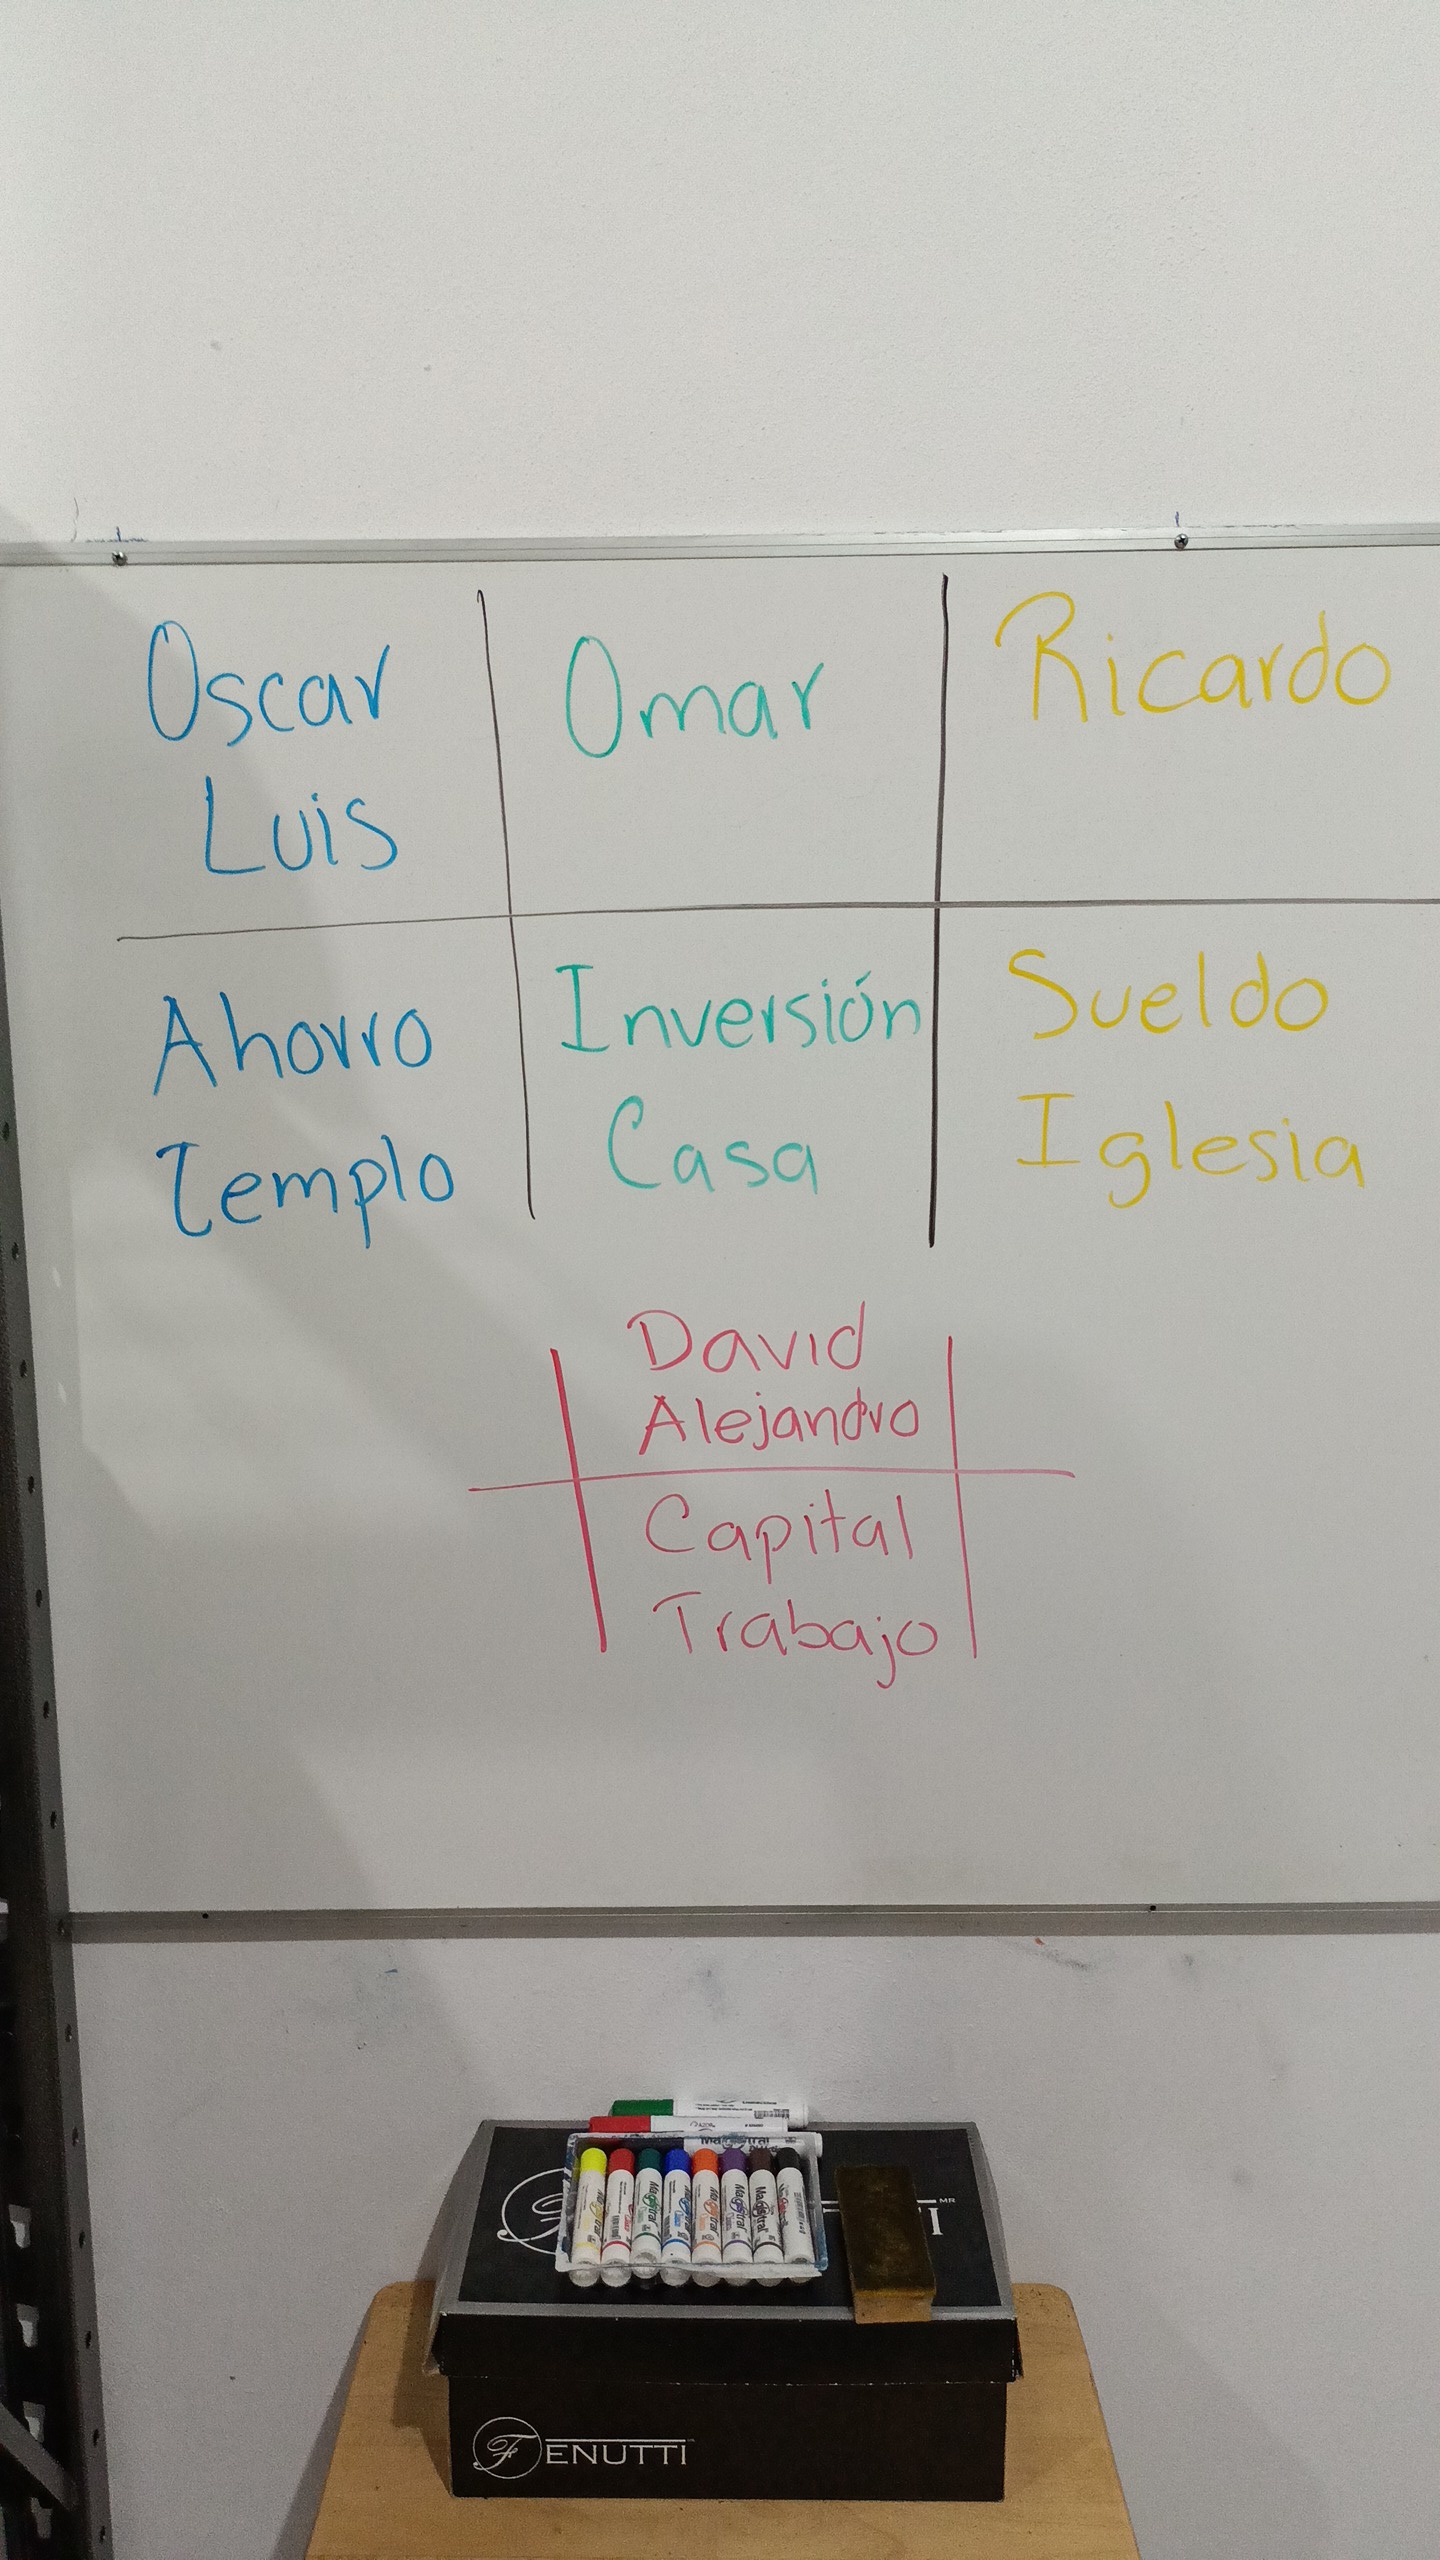 Oscar
Luis
Omar
Ricardo
Ahorro
Templo
Inversión
Casa
Sueldo
Iglesia
David
Alejandro
Capital
Trabajo
Magistral
FENUTTI